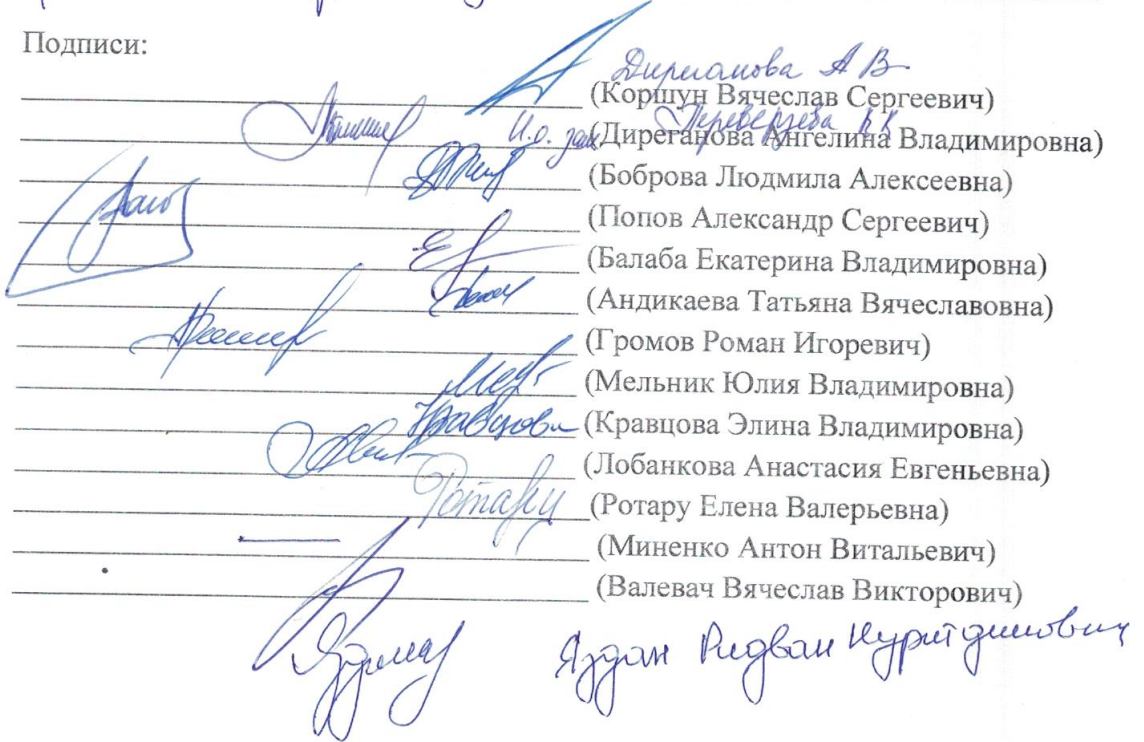 Подписи:
Диреганова А В
(Коршун Вячеслав Сергеевич)
И.о. зам Переверзева
(Диреганова Ангелина Владимировна)
(Боброва Людмила Алексеевна)
(Попов Александр Сергеевич)
(Балаба Екатерина Владимировна)
(Андикаева Татьяна Вячеславовна)
(Громов Роман Игоревич)
(Мельник Юлия Владимировна)
Кравцова (Кравцова Элина Владимировна)
(Лобанкова Анастасия Евгеньевна)
Ротару (Ротару Елена Валерьевна)
(Миненко Антон Витальевич)
(Валевач Вячеслав Викторович)
Яздан Ридван Нуритдинович